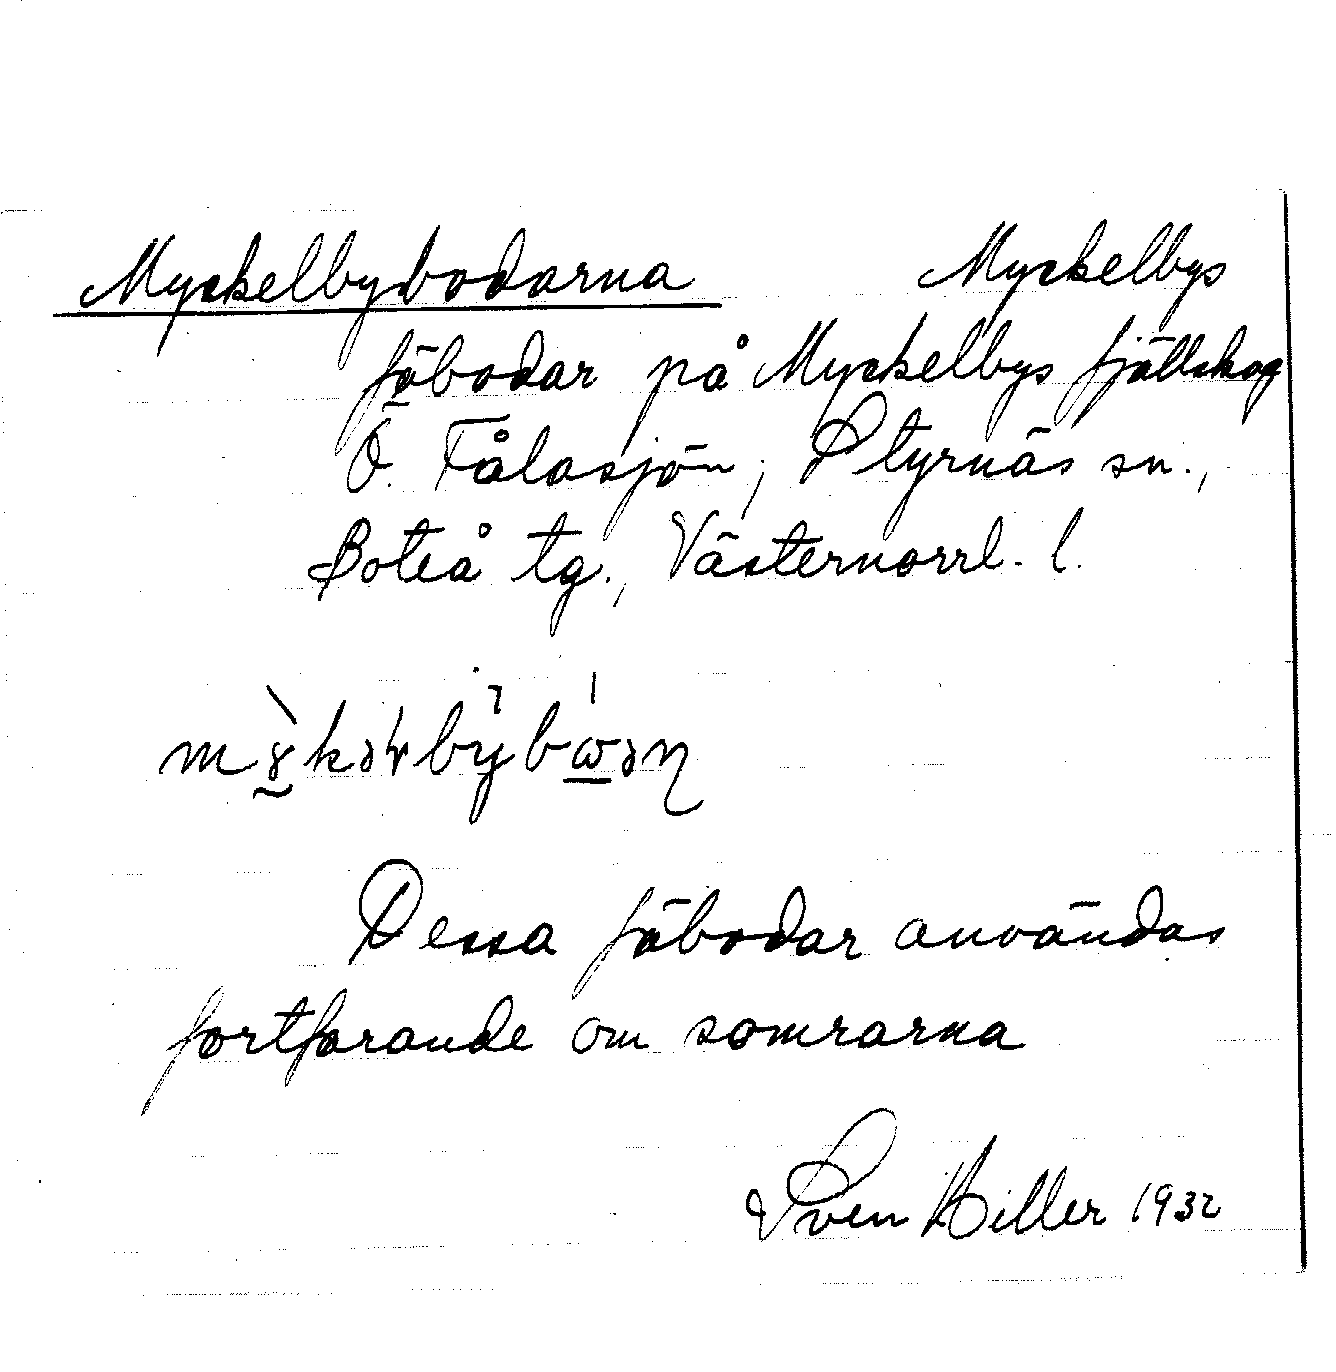 Myckelbybodarna Myckelbys
fäbodar på Myckelbys fjällskog
Ö. Tålasjön, Styrnäs sn.,
Boteå tg., Västernorrl. l.
Dessa fäbodar användas
fortfarande om somrarna
Sven Hiller 1932